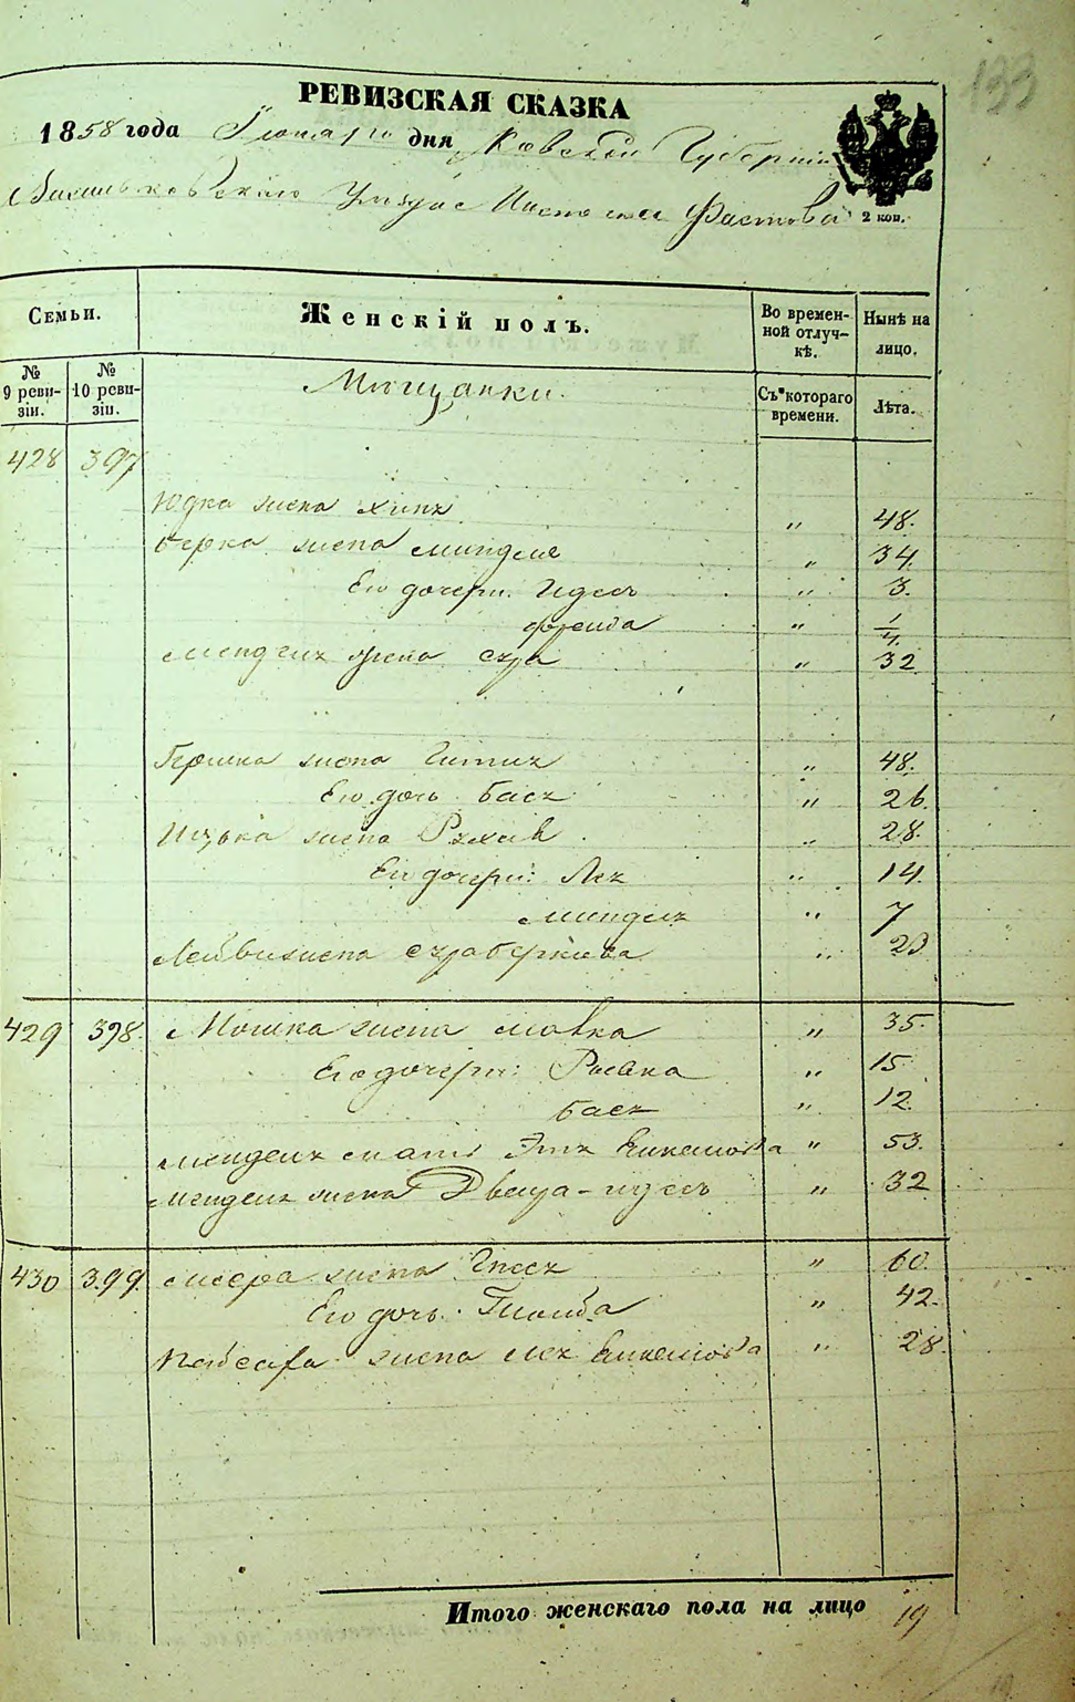 133
РЕВИЗСКАЯ СКАЗКА
1858 года дня Киевской Губерніи
Васильковского Уезда Местечка Фастова
2 коп.
Семьи.
Женскій полъ.
Во времен-
ной отлуч-
кѣ.
Нынѣ на
лицо.
№
9 реви-
зіи.
№
10 реви-
зіи.
Мещанки.
Съ котораго
времени.
Лѣта.
428 397
Юдка жена Хина " 48.
Берка жена Миндля " 34.
Его дочери: Идесъ " 3.
Фрейда " 1/4.
Менделя жена Сура " 32
Гершка жена Гитля " 48.
Его дочь Бася " 26.
Ицька жена Рухля " 28.
Его дочери: Лея " 14.
Миндля " 7
Лейби жена Сура Беркова " 23
429 398. Мошка жена Малка " 35.
Его дочери: Ривка " 15.
Бася " 12.
Менделя мать Этя " 53.
Менделя жена Двейра- " 32
430 399. Меера жена " 60.
Его дочь " 42.
жена Лея " 28.
Итого женскаго пола на лицо 19